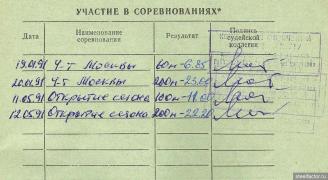 УЧАСТИЕ В СОРЕВНОВАНИЯХ*
Дата Наименование соревнования Результат Подпись судейской коллегии
19.01.91 Ч-т Москвы 60м-6.85
20.01.91 Ч-т Москвы 200м-23.00
11.05.91 Открытие сезона 100м-11.00
12.05.91 Открытие сезона 200м-22.20
steelfactor.ru